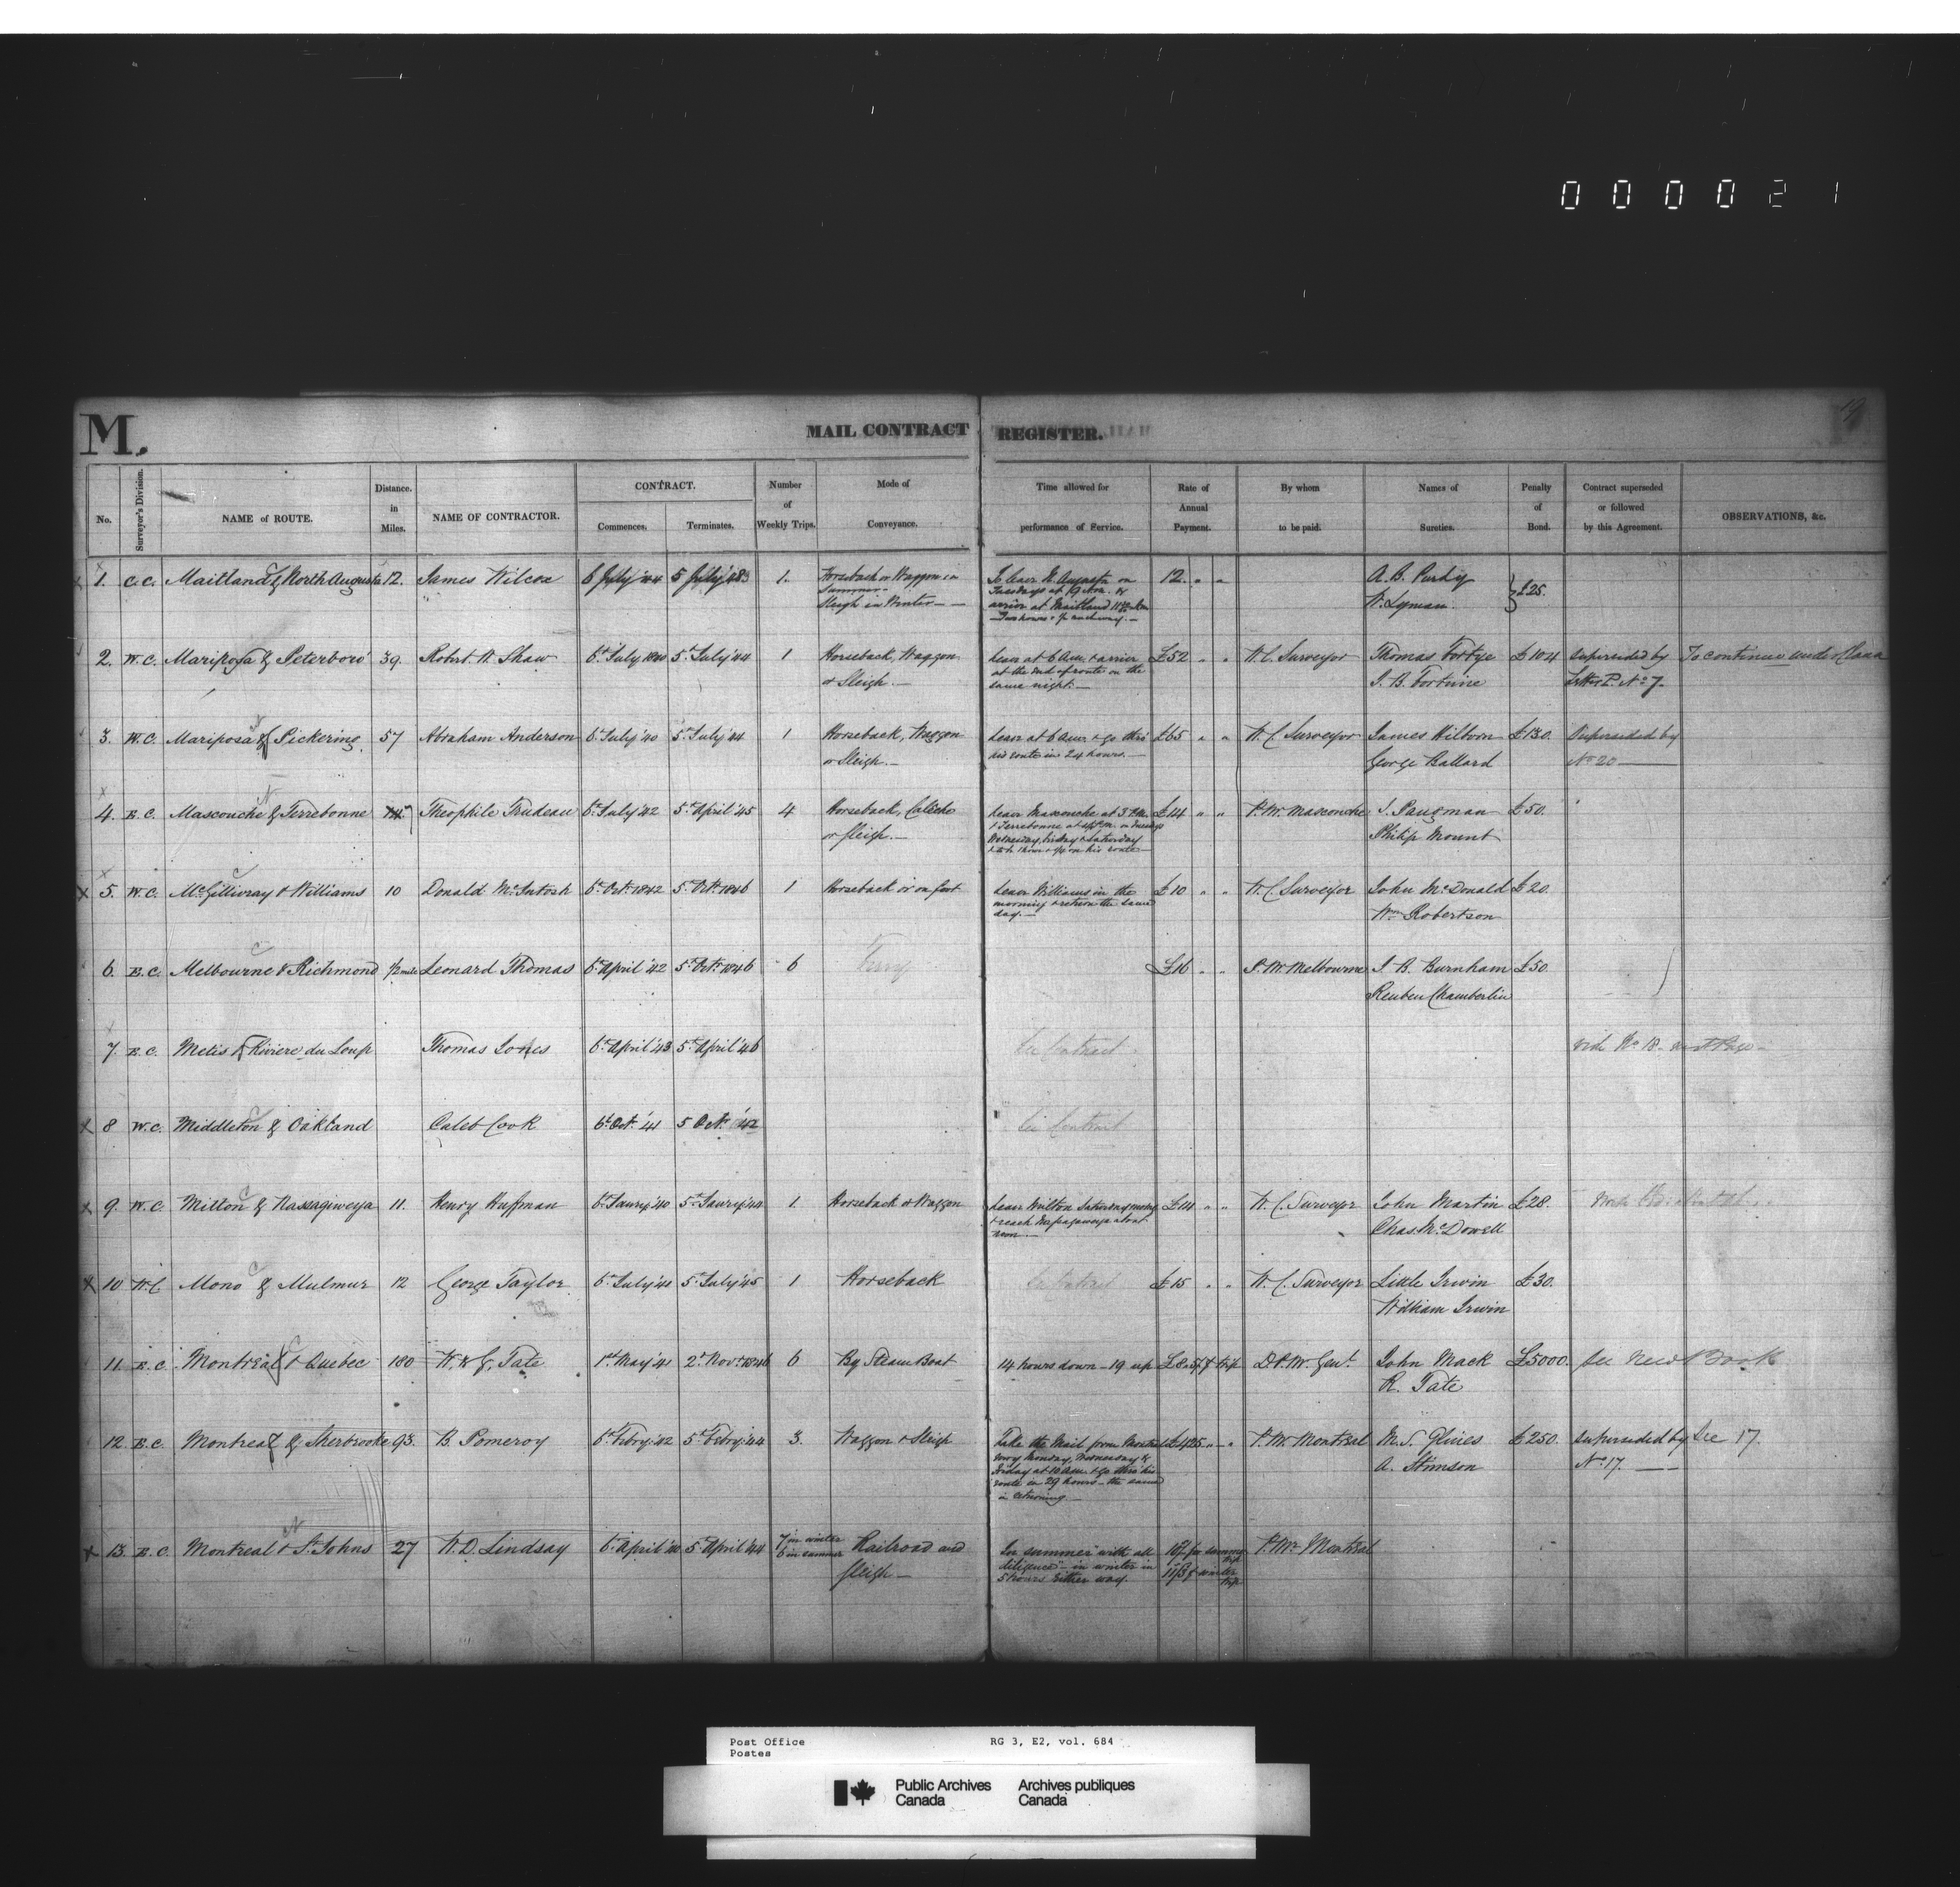 000021
19
M.
MAIL CONTRACT REGISTER.
No. Surveyor's Division. NAME of ROUTE. Distance. in Miles. NAME OF CONTRACTOR. CONTRACT. Commences. Terminates. Number of Weekly Trips. Mode of Conveyance. Time allowed for performance of Service. Rate of Annual Payment. By whom to be paid. Names of Sureties. Penalty of Bond. Contract superseded or followed by this Agreement. OBSERVATIONS, &c.
1. C.C. Maitland & North Augusta 12. James Wilcox 6 July '44 5 July '48 1. Horseback or Waggon in 12. " " A. B. Purdy £25.
Summer - Sleigh in Winter — To leave N. Augusta on Tuesdays at 9 A.M. & arrive at Maitland W. Lyman.
2. W.C. Mariposa & Peterboro' 39. Robert W. Shaw 6th July 1840 5th July '44 1 Horseback, Waggon Leave at 6 A.M. & arrive £52 " " W.C. Surveyor Thomas Fortye £104 Superseded by To continue under Clause
or Sleigh.— at the End of route on the same night.— I. B. Fortune Letter P. No 7.
3. W.C. Mariposa & Pickering. 57 Abraham Anderson 6th July '40 5th July '44 1 Horseback, Waggon Leave at 6 A.M. & go thro' £65 " " W.C Surveyor James Hilborn £130. Superseded by
or Sleigh.— his route in 24 hours.— George Ballard No 20 —
4. E.C. Mascouche & Terrebonne Theophile Trudeau 6th July '42 5th April '45 4 Horseback, Caleche Leave Mascouche at 3 P.M. £14 " " P.M. Mascouche J. Pangman £50.
or Sleigh.— & Terrebonne at on Tuesday Wednesday, Friday & Saturday on his route — Philip Mount
5. W.C. McGillivray & Williams 10 Donald McIntosh 6th Octr. 1842 5th Octr. 1846 1 Horseback or on foot Leave Williams in the £10 " " W.C Surveyor John McDonald £20.
morning & return the same day.— Wm Robertson
6. E.C. Melbourne & Richmond 1/2 mile Leonard Thomas 6th April '42 5th Octr. 1846 6 Ferry £16 " " P.M. Melbourne J. B. Burnham £50.
Reuben Chamberlin
7. E.C. Metis & Riviere du Loup Thomas Jones 6th April '43 5th April '46 See Contract. vide No 18 - next Page -
8 W.C. Middleton & Oakland Caleb Cook 6th Octr. '41 5 Octr. '42 See Contract
9. W.C. Milton & Nassagiweya 11. Henry Huffman 6th Janry '40 5th Janry '44 1. Horseback or Waggon Leave Milton Saturday £14 " " W.C. Surveyor John Martin £28.
& reach Nassagaweya about noon.— Chas. McDowell
10 W.C Mono & Mulmur 12 George Taylor 6th July '41 5th July '45 1 Horseback See Contract £15 " " W.C. Surveyor Little Irwin £30.
William Irwin
11. E.C. Montreal & Quebec 180 W. & J. Tate 1st May '41 2d Novr. 1846 6 By Steam Boat 14 hours down - 19 up trip D.P.M. Genl. John Mack £5000. See New Book
R. Tate
12. E.C. Montreal & Sherbrooke 93. B. Pomeroy 6th Febry '42 5th Febry '44 3. Waggon & Sleigh Take the Mail from Montreal £425 " " P.M. Montreal M. S. Glines £250. Superseded by See 17.
every Monday, Wednesday & Friday at 10 A.M. & go thro' his route in 29 hours - the same in returning — A. Stimson No 17. —
13. E.C. Montreal & St. Johns 27 W. D. Lindsay 6th April '40 5th April '44 7 in winter 6 in summer Railroad and In summer with all P.M. Montreal
Sleigh — diligence - in winter in 5 hours either way.
Post Office RG 3, E2, vol. 684
Postes
Public Archives Archives publiques
Canada Canada